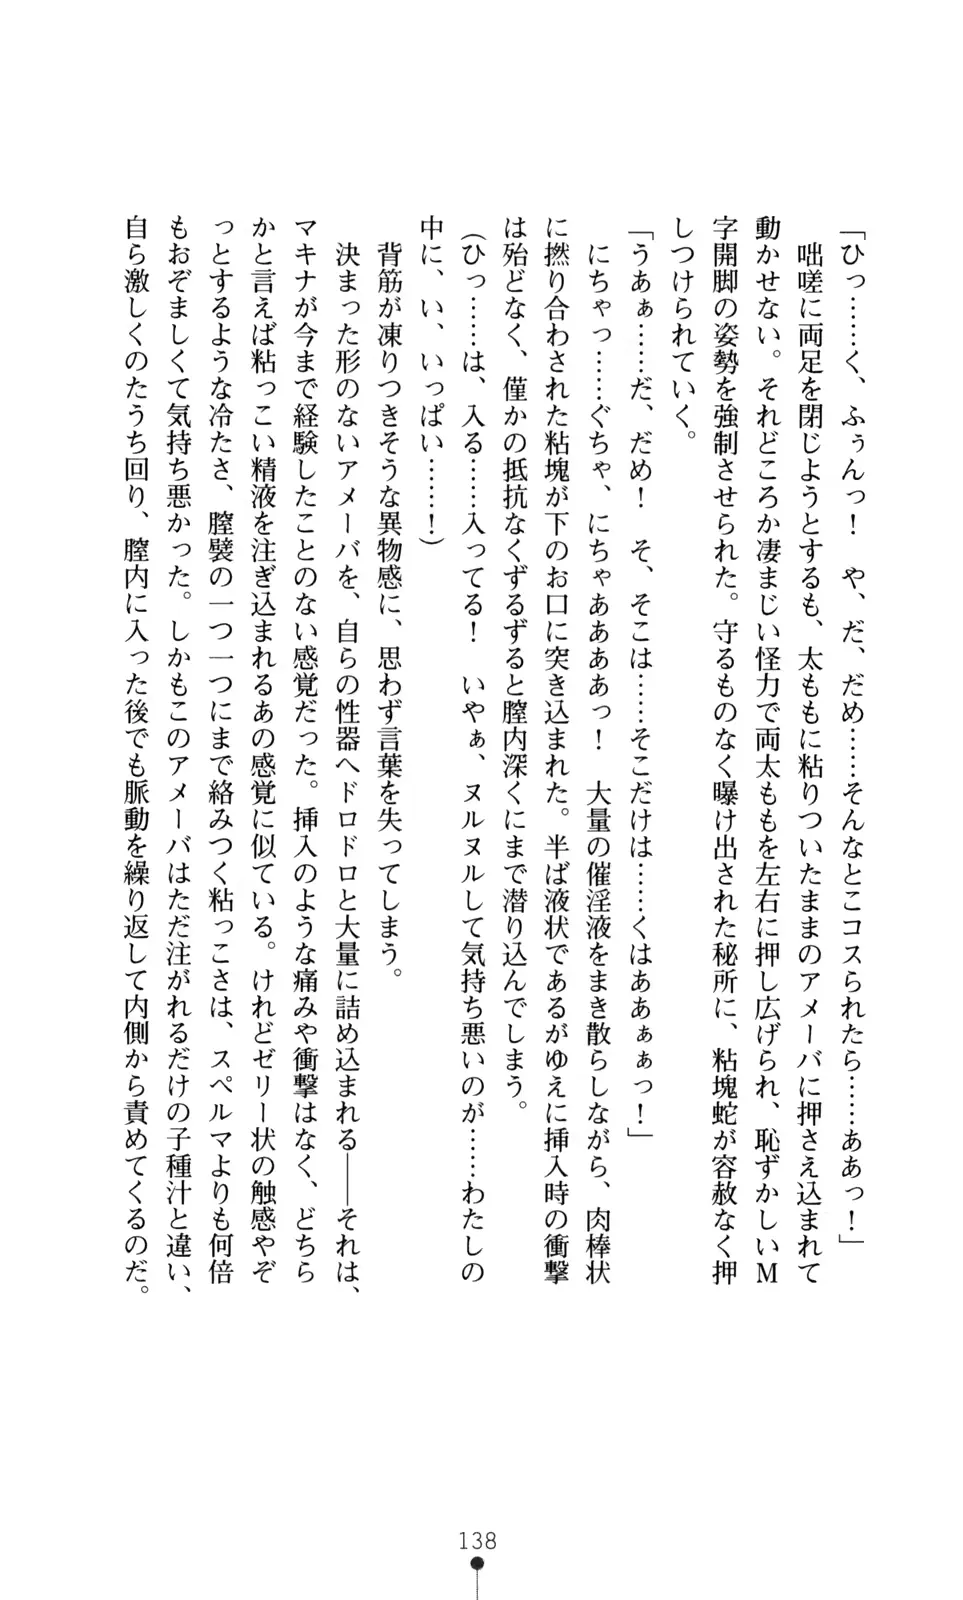 「ひっ……く、ふぅんっ！　や、だ、だめ……そんなとこコスられたら……ああっ！」
　咄嗟に両足を閉じようとするも、太ももに粘りついたままのアメーバに押さえ込まれて
動かせない。それどころか凄まじい怪力で両太ももを左右に押し広げられ、恥ずかしいＭ
字開脚の姿勢を強制させられた。守るものなく曝け出された秘所に、粘塊蛇が容赦なく押
しつけられていく。
「うあぁ……だ、だめ！　そ、そこは……そこだけは……くはああぁぁっ！」
　にちゃっ……ぐちゃ、にちゃああああっ！　大量の催淫液をまき散らしながら、肉棒状
に撚り合わされた粘塊が下のお口に突き込まれた。半ば液状であるがゆえに挿入時の衝撃
は殆どなく、僅かの抵抗なくずるずると膣内深くにまで潜り込んでしまう。
（ひっ……は、入る……入ってる！　いやぁ、ヌルヌルして気持ち悪いのが……わたしの
中に、い、いっぱい……！）
　背筋が凍りつきそうな異物感に、思わず言葉を失ってしまう。
　決まった形のないアメーバを、自らの性器へドロドロと大量に詰め込まれる――それは、
マキナが今まで経験したことのない感覚だった。挿入のような痛みや衝撃はなく、どちら
かと言えば粘っこい精液を注ぎ込まれるあの感覚に似ている。けれどゼリー状の触感やぞ
っとするような冷たさ、膣襞の一つ一つにまで絡みつく粘っこさは、スペルマよりも何倍
もおぞましくて気持ち悪かった。しかもこのアメーバはただ注がれるだけの子種汁と違い、
自ら激しくのたうち回り、膣内に入った後でも脈動を繰り返して内側から責めてくるのだ。
138